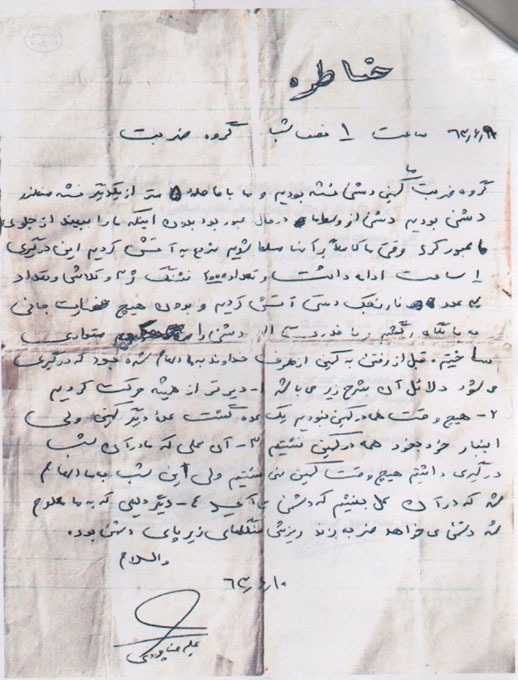 خاطره
۶۳,۶,۹ ساعت ۱ نصف شب گروه ضربت
گروه ضربت ما کمین دشمن نشسته بودیم و ما با فاصله ۵ متر از یکدیگر نشسته منتظر
دشمن بودیم دشمن از وسط ما در حال عبور بود بدون اینکه ما را ببیند از جلوی
ما عبور کرد وقتی ما کاملاً بر آنها مسلط شویم شروع به آتش کردیم این درگیری
۱ ساعت ادامه داشت و تعداد فشنگ ژ۳ و کلاش و تعداد
عدد نارنجک دستی آتش کردیم و بدون هیچ خسارت جانی
به ما دشمن را متواری
ساختیم. قبل از رفتن به کمین از طرف خداوند به ما الهام شده بود که درگیری
می شود دلائل آن بشرح زیر می باشد ۱- دیرتر از همیشه حرکت کردیم
۲- هیچ وقت ما در کمین نبودیم یک عده گشت عده دیگر کمین ولی
اینبار خود بخود همه در کمین نشستیم ۳- آن محلی که ما در آن شب
درگیری داشتیم هیچ وقت کمین نمی نشستیم ولی این شب بما الهام
شد که در آن محل بنشینیم که دشمن می آید ۴- دیگر دلیلی که به ما معلوم
شد دشمن می خواهد ضربه بزند ریزش سنگهای زیر پای دشمن بود.
والسلام
۶۳,۶,۱۰